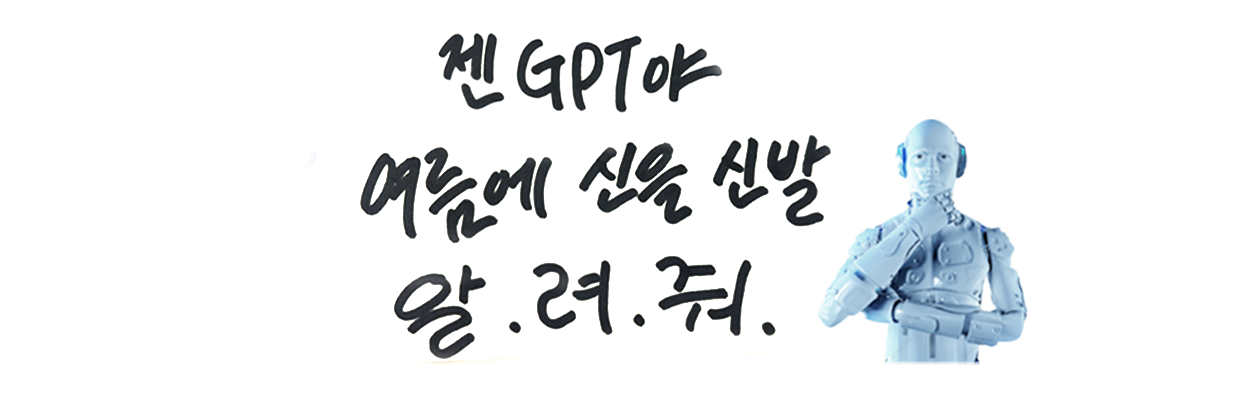 젠 GPT야
여름에 신을 신발
알.려.줘.